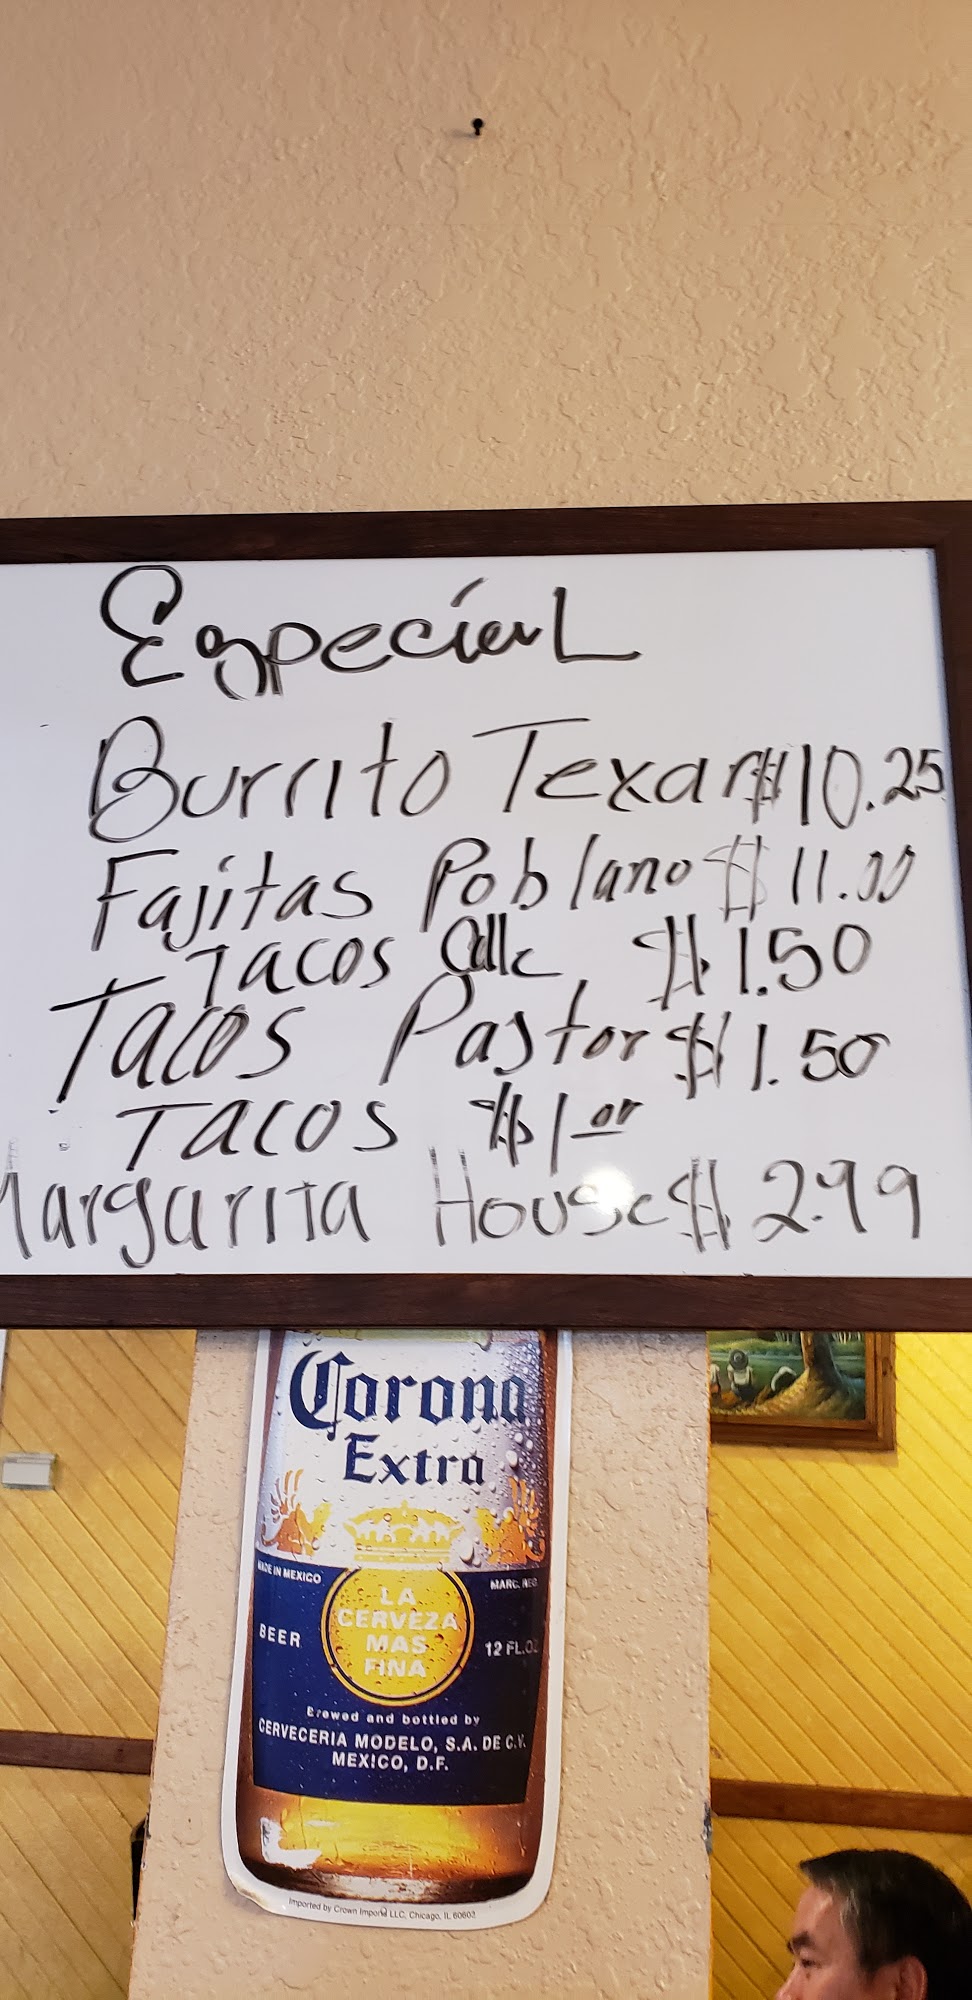 Especial
Burrito Texan $10.25
Fajitas Poblano $11.00
Tacos Calle $1.50
Tacos Pastor $1.50
Tacos $1.00
Margarita House $2.99
Corona
Extra
MADE IN MEXICO
MARC. REG.
LA
CERVEZA
MAS
FINA
BEER
12 FL.OZ
Brewed and bottled by
CERVECERIA MODELO, S.A. DE C.V.
MEXICO, D.F.
Imported by Crown Imports LLC, Chicago, IL 60603